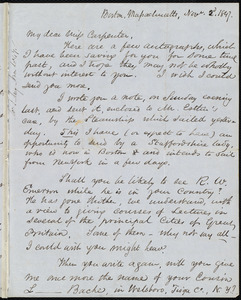 Boston, Massachusetts, Nov. 2. 1847.
My dear Miss Carpenter.
Here are a few autographs, which
I have been saving for you for some time
past, and I trust they may not be wholly
without interest to you. I wish I could
send you more.
I wrote you a note, on Sunday evening
last, and sent it, enclosed to Mr. Estlin's
care, by the Steamship which sailed yester-
day. This I have (or expect to have) an
opportunity to send by a Staffordshire lady,
who is now in Boston & and intends to sail
from New York in a few days.
Shall you be likely to see R. W.
Emerson while he is in your Country?
He has gone thither, we understand, with
a view to giving courses of Lectures in
several of the Provincial Cities of Great
Britain. Some of them - why not say all -
I could wish you might hear.
When you write again, will you give
me once more the name of your Cousin
L Bache, in Wellsboro, Tioga Co., N. Y?